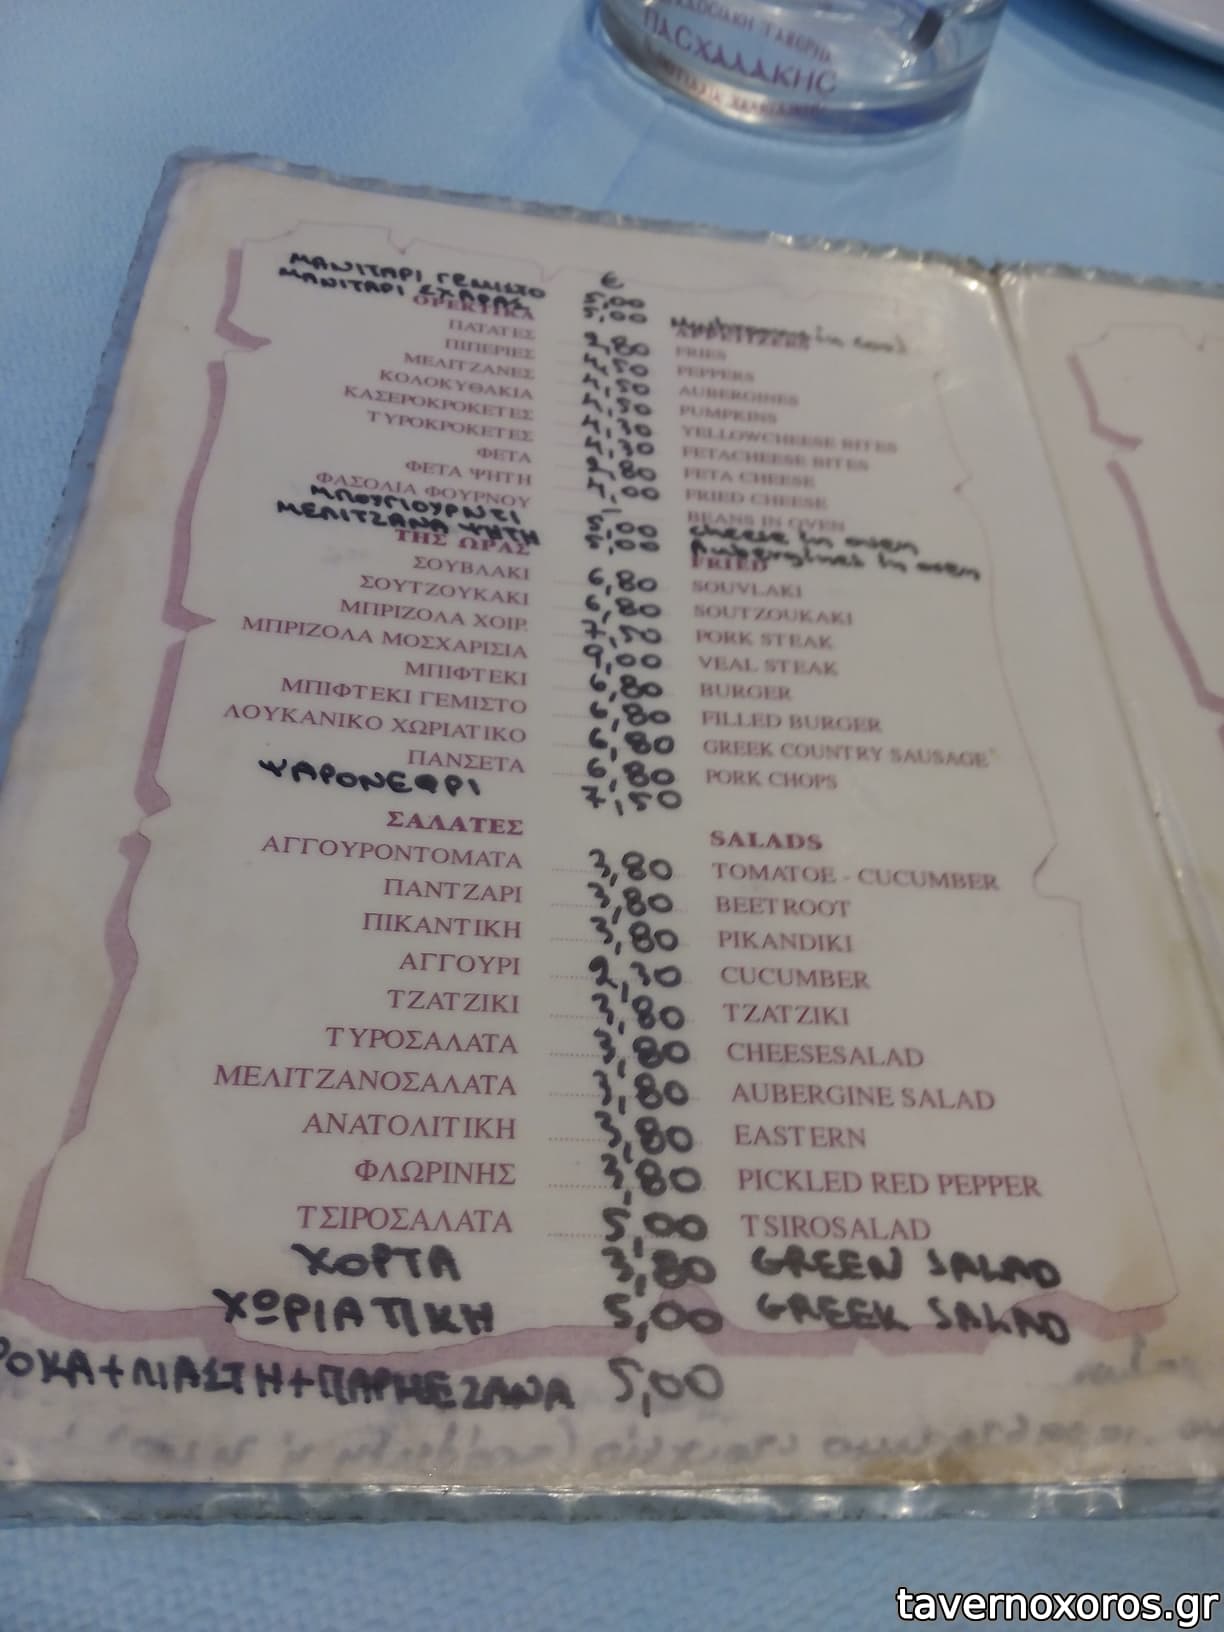 ΠΑΣΧΑΛΑΚΗΣ
€
ΜΑΝΙΤΑΡΙ ΓΕΜΙΣΤΟ 5,00
ΜΑΝΙΤΑΡΙ ΣΧΑΡΑΣ 5,00
ΟΡΕΚΤΙΚΑ APPETIZERS
ΠΑΤΑΤΕΣ 2,80 FRIES
ΠΙΠΕΡΙΕΣ 4,50 PEPPERS
ΜΕΛΙΤΖΑΝΕΣ 4,50 AUBERGINES
ΚΟΛΟΚΥΘΑΚΙΑ 4,50 PUMPKINS
ΚΑΣΕΡΟΚΡΟΚΕΤΕΣ 4,30 YELLOWCHEESE BITES
ΤΥΡΟΚΡΟΚΕΤΕΣ 4,30 FETACHEESE BITES
ΦΕΤΑ 2,80 FETA CHEESE
ΦΕΤΑ ΨΗΤΗ 4,00 FRIED CHEESE
ΦΑΣΟΛΙΑ ΦΟΥΡΝΟΥ - BEANS IN OVEN
ΜΠΟΥΓΙΟΥΡΝΤΙ 5,00 cheese in oven
ΜΕΛΙΤΖΑΝΑ ΨΗΤΗ 5,00 Aubergines in oven
ΤΗΣ ΩΡΑΣ FRIED
ΣΟΥΒΛΑΚΙ 6,80 SOUVLAKI
ΣΟΥΤΖΟΥΚΑΚΙ 6,80 SOUTZOUKAKI
ΜΠΡΙΖΟΛΑ ΧΟΙΡ. 7,50 PORK STEAK
ΜΠΡΙΖΟΛΑ ΜΟΣΧΑΡΙΣΙΑ 9,00 VEAL STEAK
ΜΠΙΦΤΕΚΙ 6,80 BURGER
ΜΠΙΦΤΕΚΙ ΓΕΜΙΣΤΟ 6,80 FILLED BURGER
ΛΟΥΚΑΝΙΚΟ ΧΩΡΙΑΤΙΚΟ 6,80 GREEK COUNTRY SAUSAGE
ΠΑΝΣΕΤΑ 6,80 PORK CHOPS
ΨΑΡΟΝΕΦΡΙ 7,50
ΣΑΛΑΤΕΣ SALADS
ΑΓΓΟΥΡΟΝΤΟΜΑΤΑ 3,80 TOMATOE - CUCUMBER
ΠΑΝΤΖΑΡΙ 3,80 BEETROOT
ΠΙΚΑΝΤΙΚΗ 3,80 PIKANDIKI
ΑΓΓΟΥΡΙ 2,30 CUCUMBER
ΤΖΑΤΖΙΚΙ 3,80 TZATZIKI
ΤΥΡΟΣΑΛΑΤΑ 3,80 CHEESESALAD
ΜΕΛΙΤΖΑΝΟΣΑΛΑΤΑ 3,80 AUBERGINE SALAD
ΑΝΑΤΟΛΙΤΙΚΗ 3,80 EASTERN
ΦΛΩΡΙΝΗΣ 3,80 PICKLED RED PEPPER
ΤΣΙΡΟΣΑΛΑΤΑ 5,00 TSIROSALAD
ΧΟΡΤΑ 3,80 GREEN SALAD
ΧΩΡΙΑΤΙΚΗ 5,00 GREEK SALAD
ΡΟΚΑ+ΛΙΑΣΤΗ+ΠΑΡΜΕΖΑΝΑ 5,00
tavernoxoros.gr